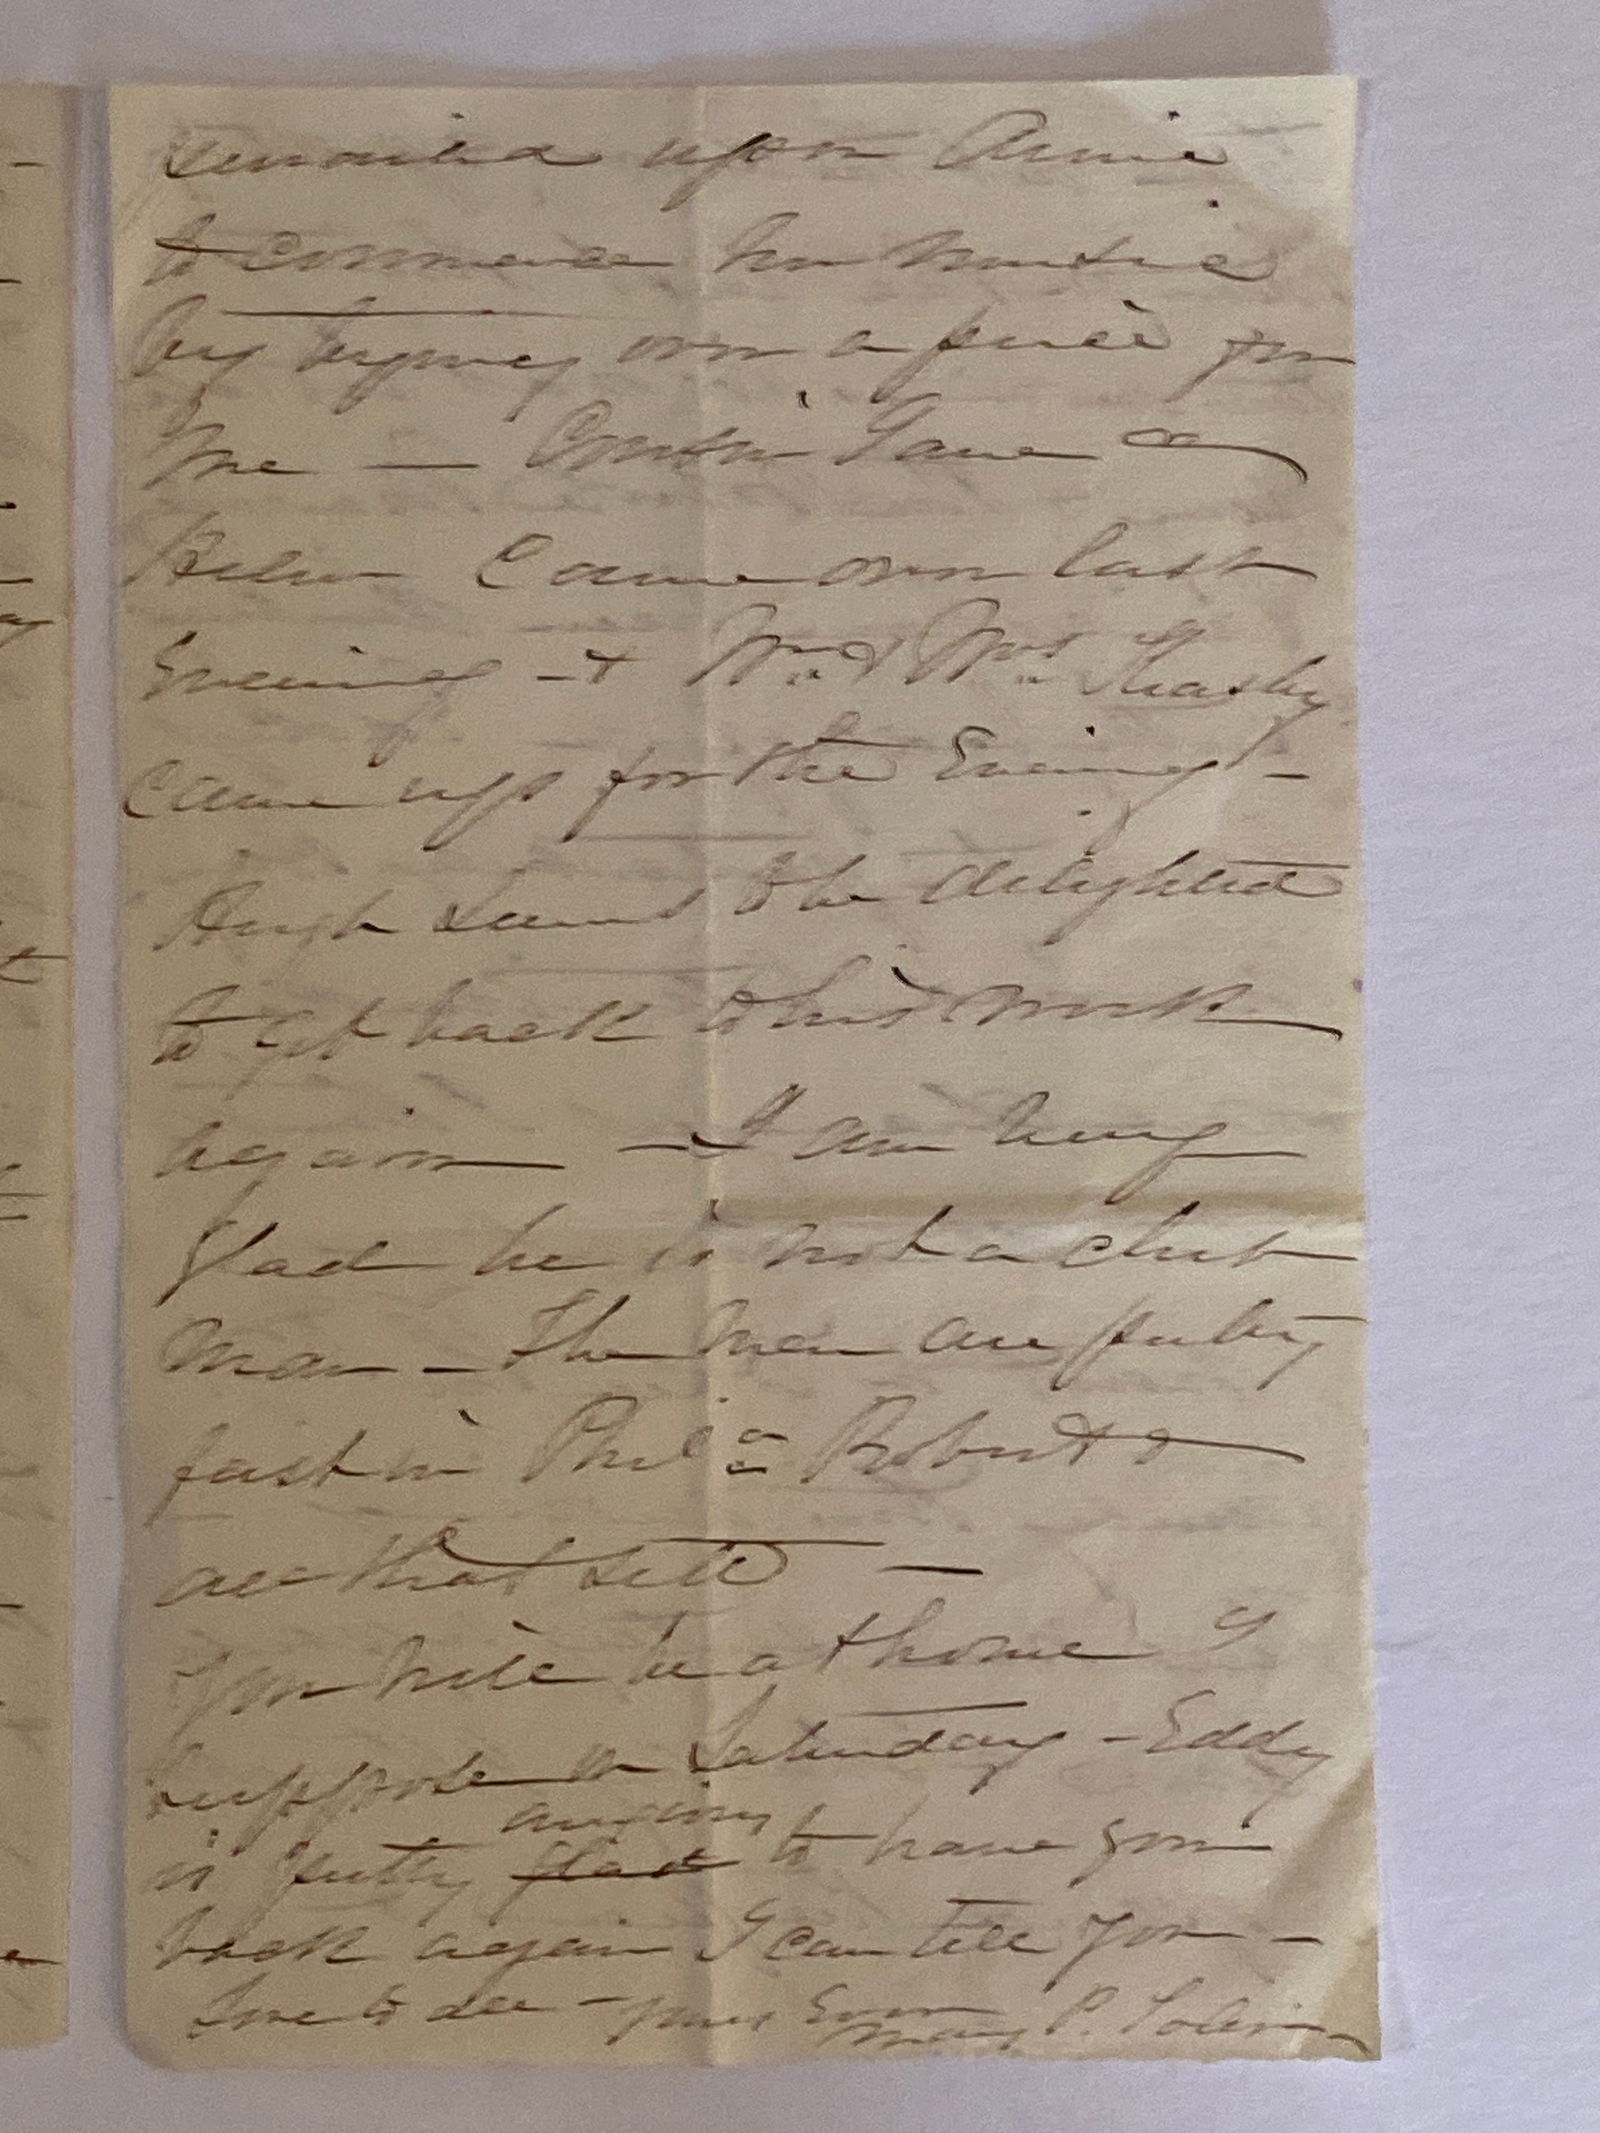 upon Annie
to commence her
by trying on a piece for
me — Cousin Jane &
Helen came on last
Evening — & Mr. & Mrs.
came up for the Evening —
Hugh seems to be delighted
to get back to his work
again — I am very
glad he is not a club
man — The men are pretty
fast in Phila Robert &
all that sett —
You will be at home I
suppose on Saturday — Eddy
is pretty anxious to have you
back again I can tell you —
Love to all — Yours Ever
Mary P.